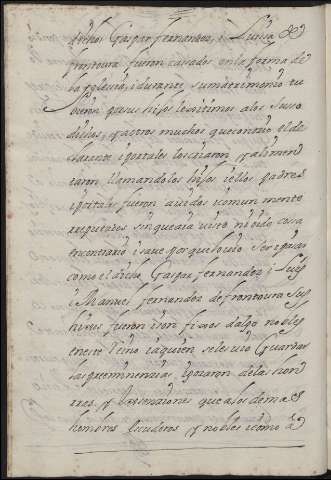 dichos Gaspar Fernandez, i Luisa de
frontoura fueron casados en la forma de
la Yglesia, i durante su matrimonio tu
bieron por sus hijos lexitimos a los suso
dichos, y a otros muchos que conocio el de
clarante i por tales los criaron, y alimen
taron llamandolos hijos i ellos padres
i por tales fueron auidos i comun mente
reputados sin que aia uisto ni oido cosa
en contrario i saue por que lo uio ser i pasar
como el dicho Gaspar fernandez i Luis
i Manuel fernandez de frontoura sus
hixos fueron i son fixos dalgo nobles
en este Reino i a quien se les uio Guardar
las preeminencias, i goçaron de las honr
ras, y exsenciones que a los demas
hombres escuderos y nobles i como a